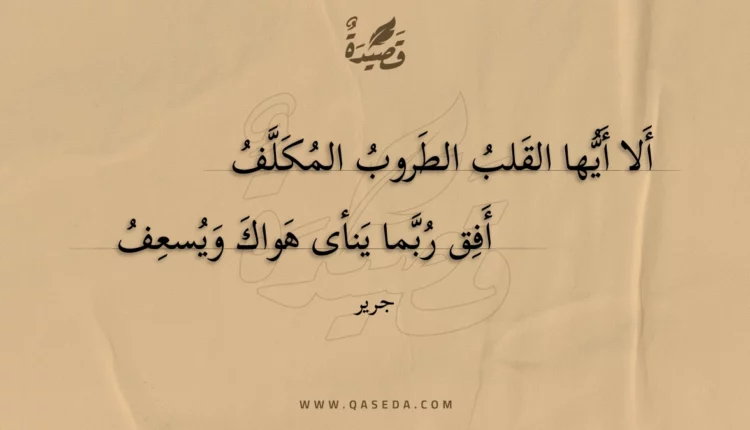 قَصِيدَةٌ
أَلا أَيُّها القَلبُ الطَروبُ المُكَلَّفُ
أَفِق رُبَّما يَنأى هَواكَ وَيُسعِفُ
جرير
WWW.QASEDA.COM